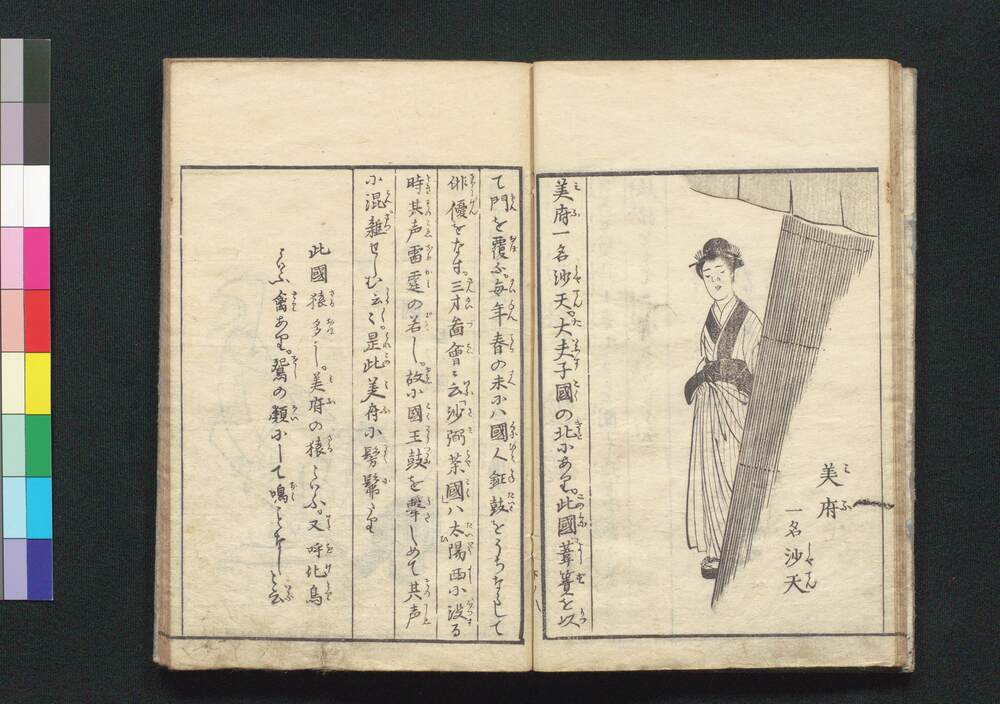 美府
一名沙天
美府一名沙天。大夫子國の北にあり。此國葦簀を以
て門を覆ふ。毎年春の末にハ國人鉦鼓をうちならして
俳優をなす。三才畣會ニ云「沙弼茶國」ハ太陽西に没る
時其声雷霆の若し。故に國王鼓を撃しめて其声
に混雜せしむ云々。是此美府に髣髴たり
此國猿多し。美府の猿といふ。又呼化鳥
といふ禽あり。鴛の類にして鳴